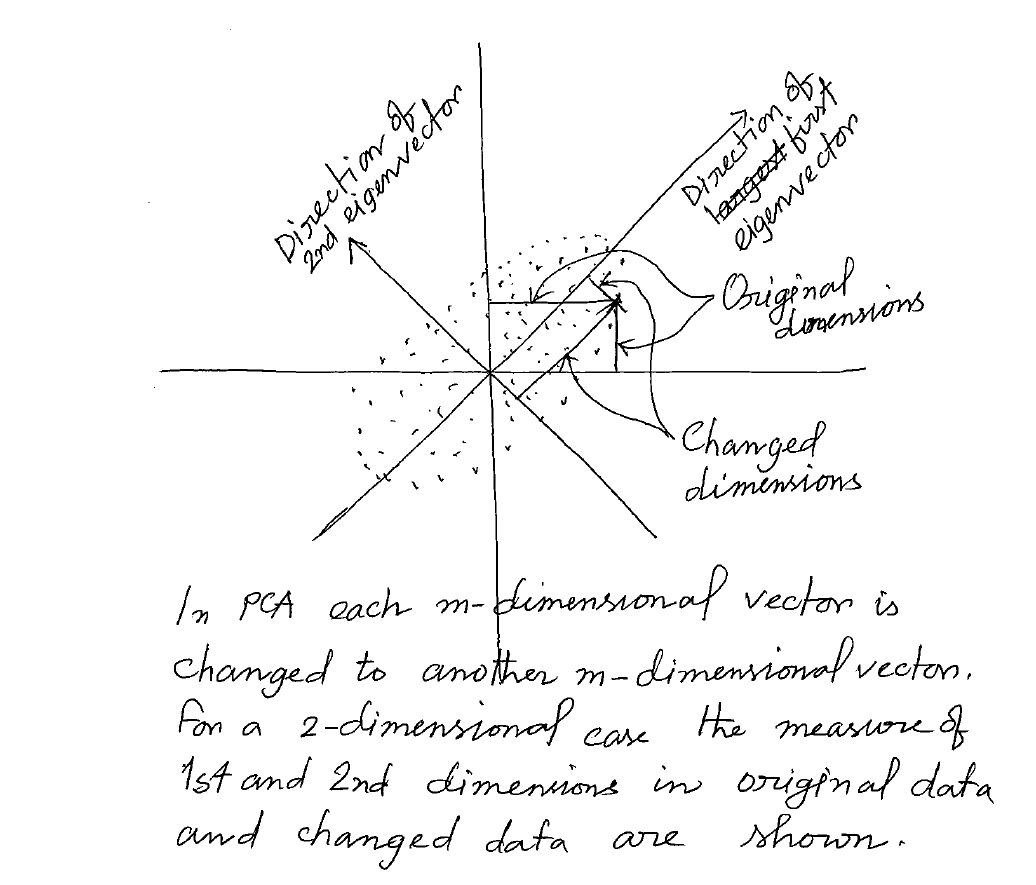 Direction of
2nd eigenvector
Direction of
largest first
eigenvector
Original
dimensions
Changed
dimensions
In PCA each m-dimensional vector is
changed to another m-dimensional vector.
For a 2-dimensional case the measure of
1st and 2nd dimensions in original data
and changed data are shown.